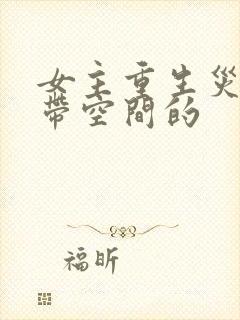 女主重生災
帶空間的
福昕